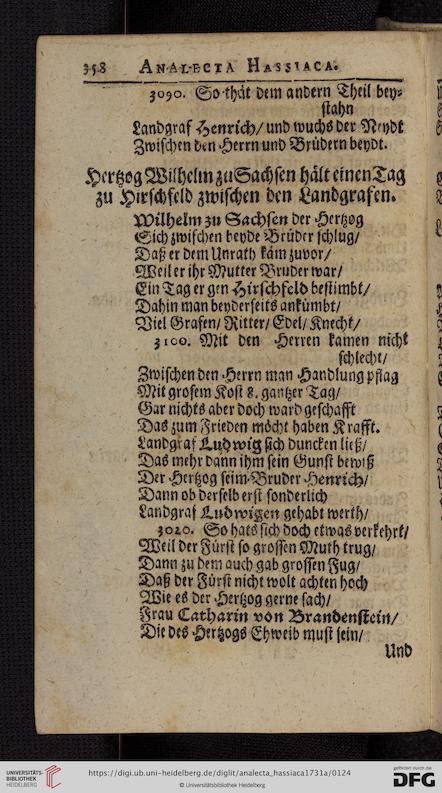 358 ANALECTA HASSIACA.
3090. So thät dem andern Theil bey-
stahn
Landgraf Henrich/ und wuchs der Neydt
Zwischen den Herrn und Brüdern beydt.
Hertzog Wilhelm zu Sachsen hält einen Tag
zu Hirschfeld zwischen den Landgrafen.
Wilhelm zu Sachsen der Hertzog
Sich zwischen beyde Brüder schlug/
Daß er dem Unrath käm zuvor/
Weil er ihr Mutter Bruder war/
Ein Tag er gen Hirschfeld bestimbt/
Dahin man beyderseits ankümbt/
Viel Grafen/ Ritter/ Edel/ Knecht/
3100. Mit den Herren kamen nicht
schlecht/
Zwischen den Herrn man Handlung pflag
Mit grosem Kost 8. gantzer Tag/
Gar nichts aber doch ward geschafft
Das zum Frieden möcht haben Krafft.
Landgraf Ludwig sich duncken ließ/
Das mehr dann ihm sein Gunst bewiß
Der Hertzog seim Bruder Henrich/
Dann ob derselb erst sonderlich
Landgraf Ludwigen gehabt werth/
3020. So hats sich doch etwas verkehrt/
Weil der Fürst so grossen Muth trug/
Dann zu dem auch gab grossen Fug/
Daß der Fürst nicht wolt achten hoch
Wie es der Hertzog gerne sach/
Frau Catharin von Brandenstein/
Die des Hertzogs Ehweib must sein/
Und
UNIVERSITÄTS-
BIBLIOTHEK
HEIDELBERG
https://digi.ub.uni-heidelberg.de/diglit/analecta_hassiaca1731a/0124
© Universitätsbibliothek Heidelberg
gefördert durch die
DFG